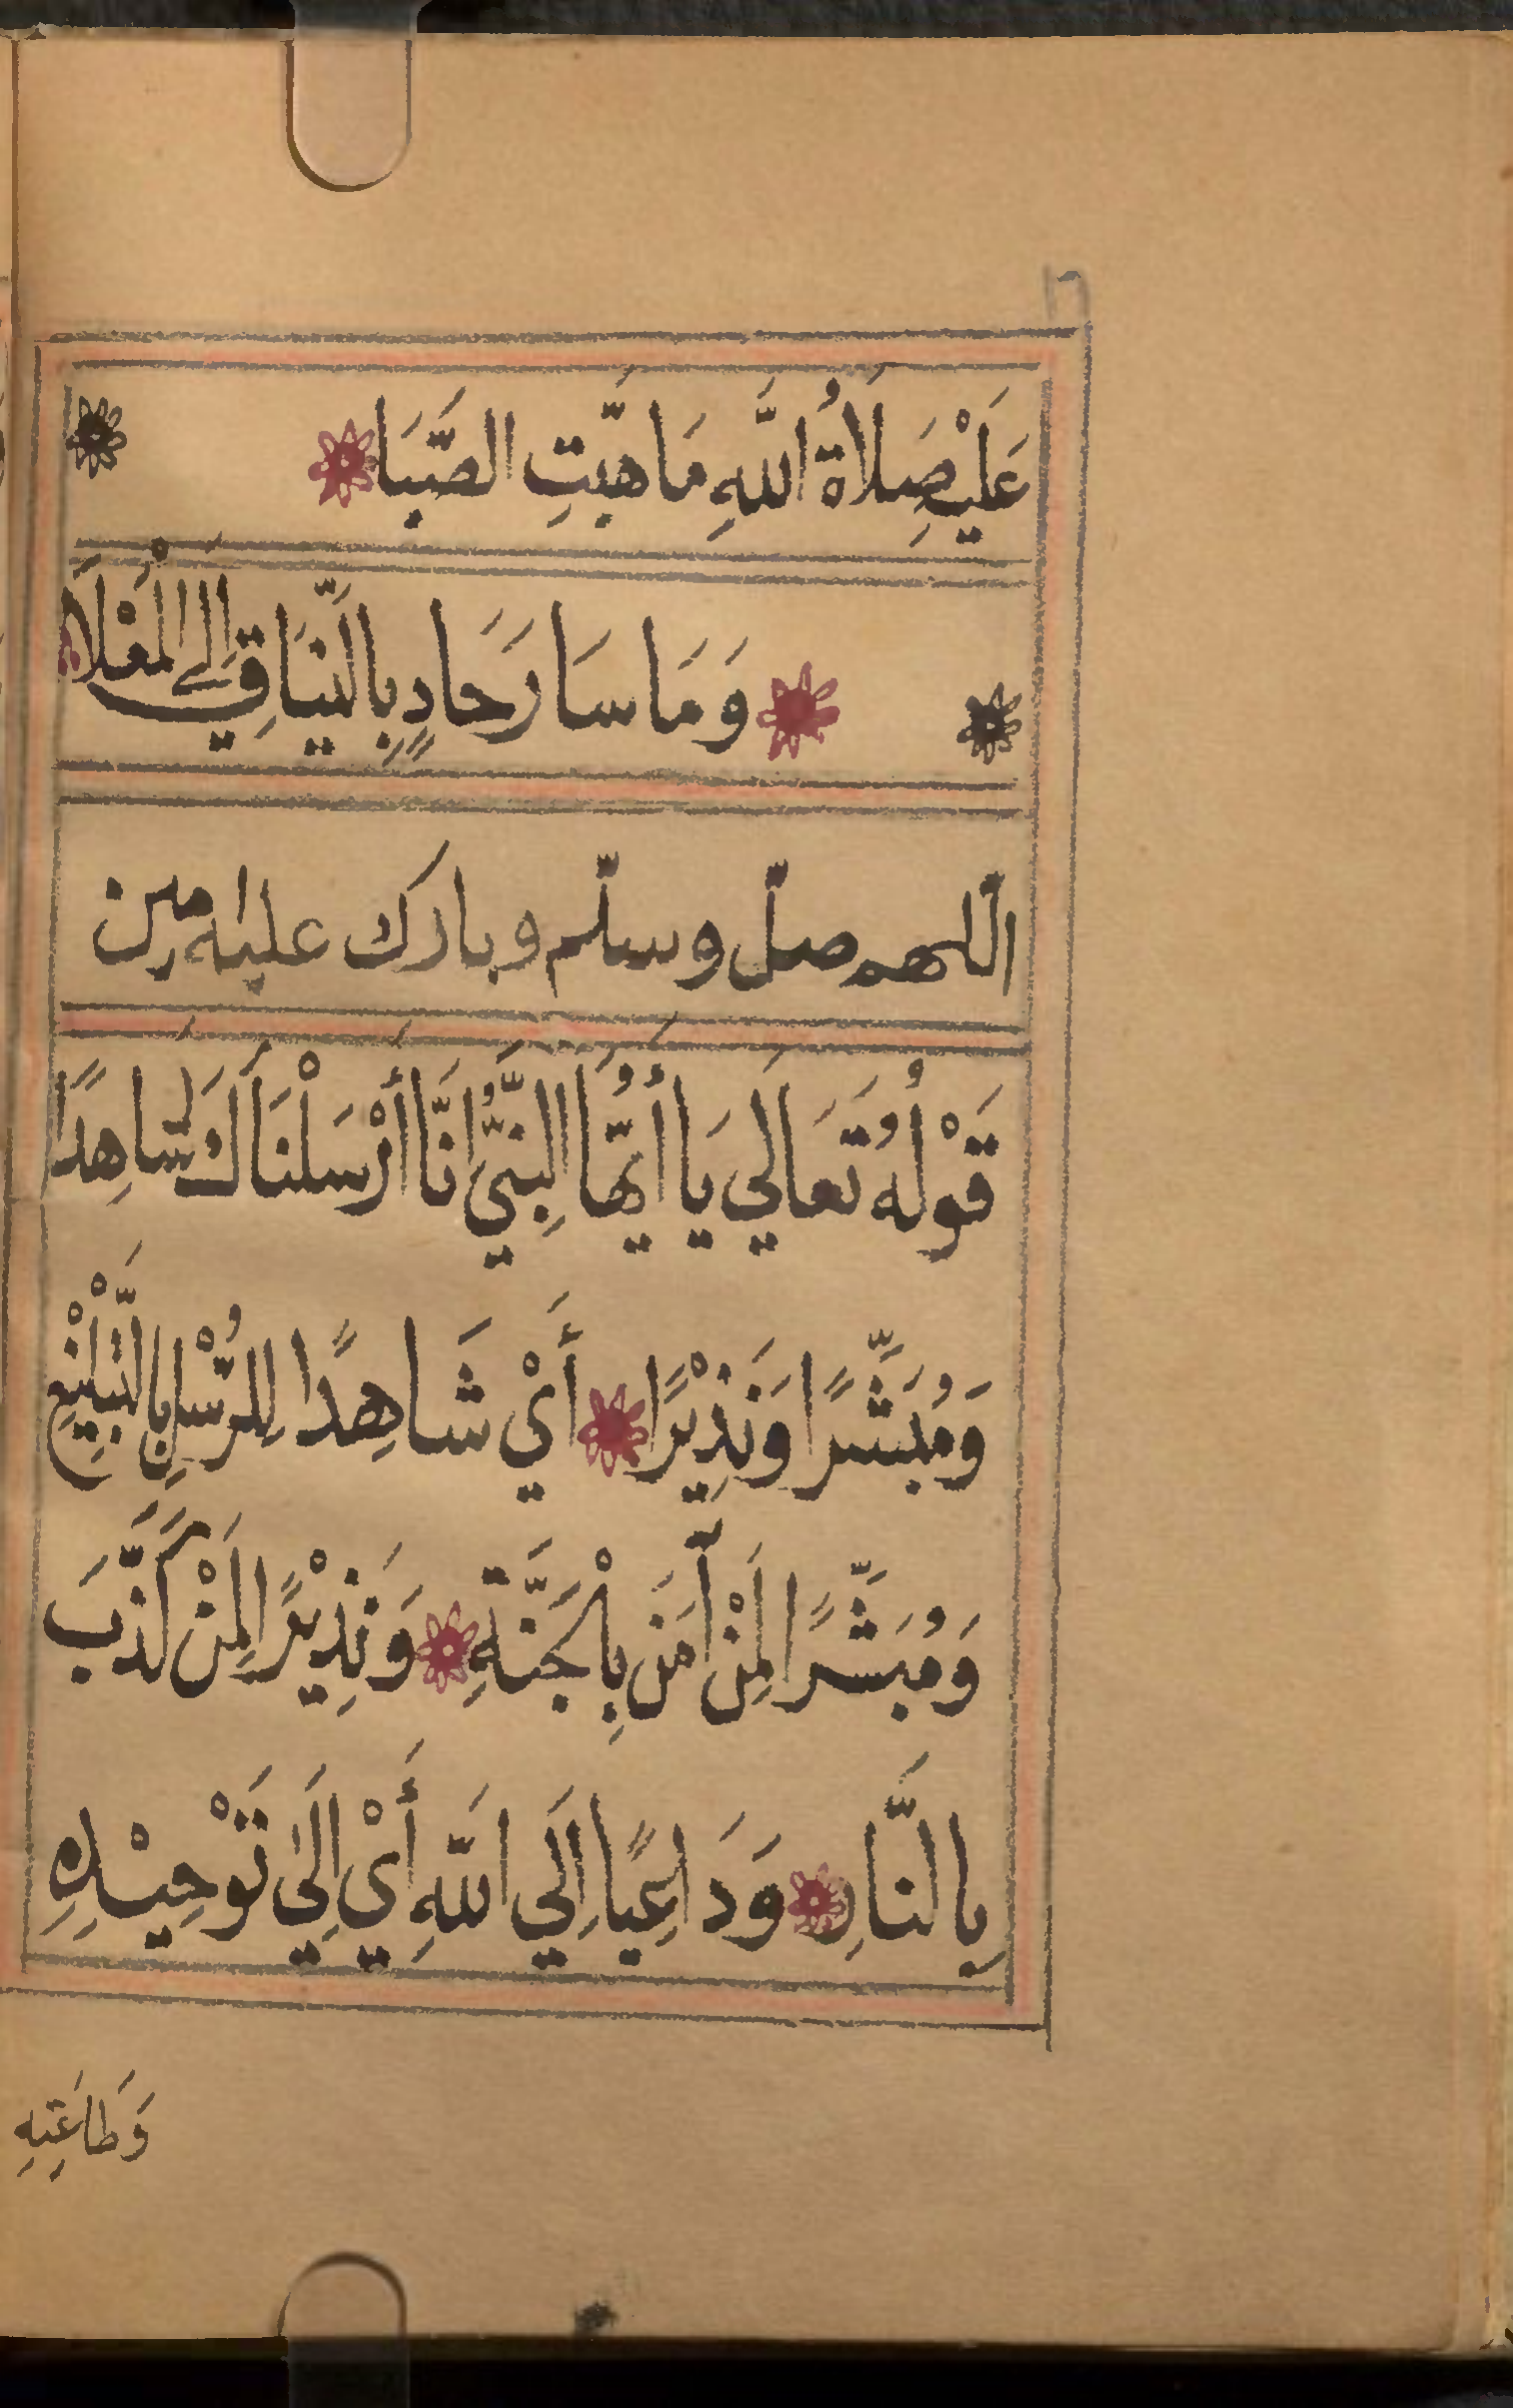 عَلَيْهِ صَلَاةُ اللَّهِ مَا هَبَّتِ الصَّبَا
وَمَا سَارَ حَادٍ بِالنِّيَاقِ إِلَى الْمَعْلَا
اللّهم صلّ وسلّم وبارك عليه امين
قَوْلُهُ تَعَالَي يَا أَيُّهَا النَّبِيُّ انَّا أَرْسَلْنَاكَ شَاهِدًا
وَمُبَشِّرًا وَنَذِيْرًا أَيْ شَاهِدًا لِلرُّسْلِ بِالتَّبْلِيْغِ
وَمُبَشِّرًا لِمَنْ آمَنَ بِالْجَنَّةِ وَنَذِيْرًا لِمَنْ كَذَّبَ
بِالنَّارِ وَدَاعِيًا اِلَي اللَّهِ أَيْ اِلَيٰ تَوْحِيْدِهِ
وَطَاعَتِهِ